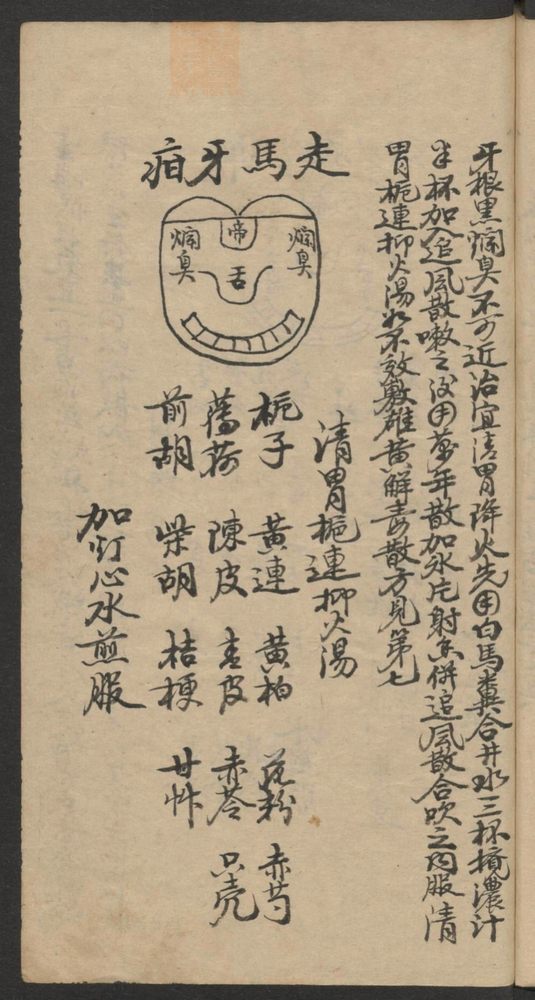 牙根黑爛臭不可近治宜清胃降火先用白馬糞合井水三杯擂濃汁
半杯加入追風散嗽之後用萬年散加氷片射香併追風散合吹之内服清
胃梔連抑火湯如不效敷雄黄解毒散方見第七
走馬牙疳
爛臭 帝 舌 爛臭
清胃梔連抑火湯
梔子 黄連 黄柏 花粉 赤芍
薄荷 陳皮 青皮 赤苓 只壳
前胡 柴胡 桔梗 甘艸
加灯心水煎服